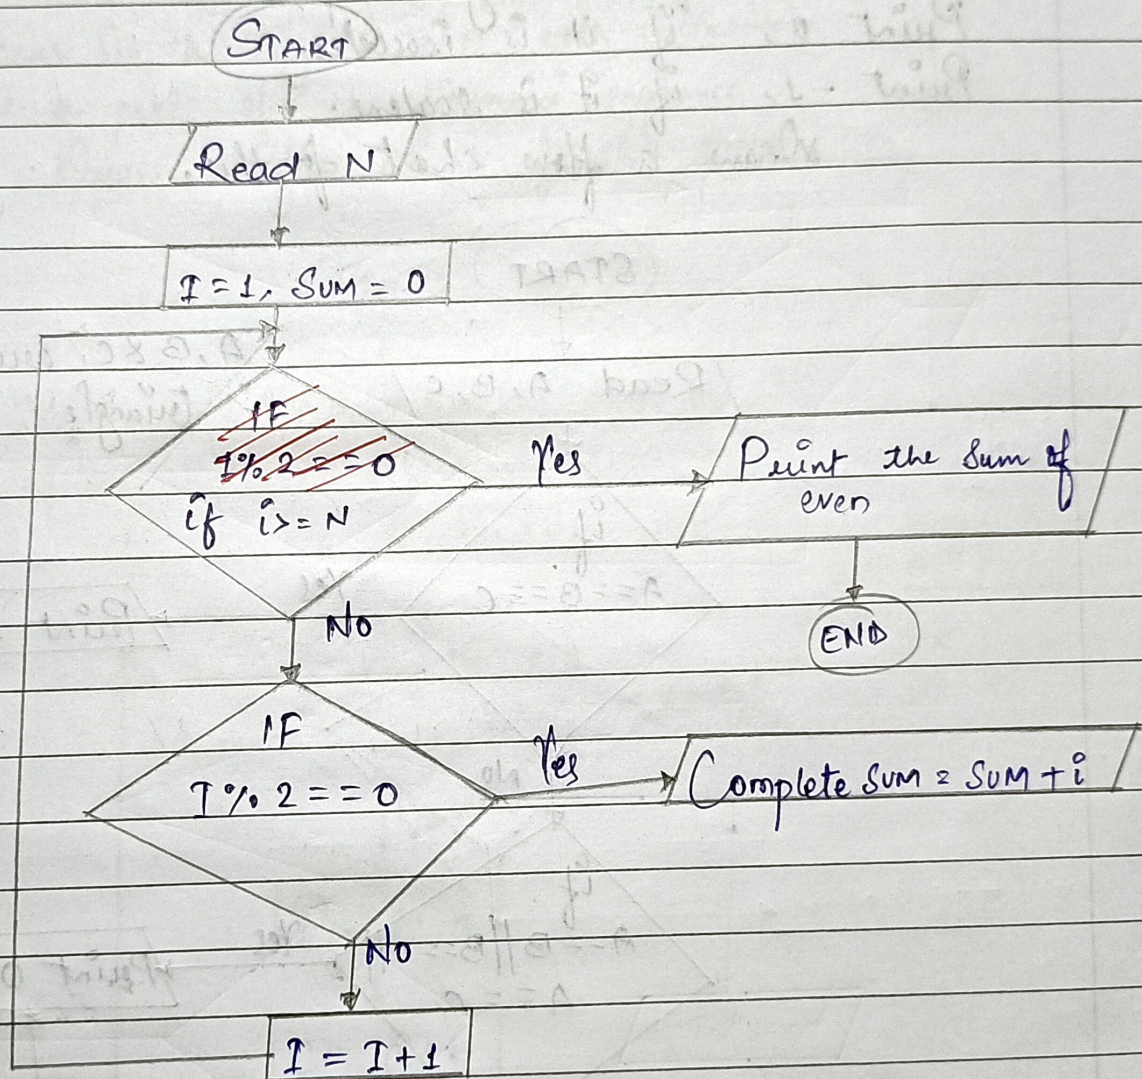 START
Read N
I = 1, SUM = 0
IF
I % 2 == 0
if i >= N
Yes
Print the Sum of
even
END
No
IF
I % 2 == 0
Yes
Complete SUM = SUM + i
No
I = I + 1